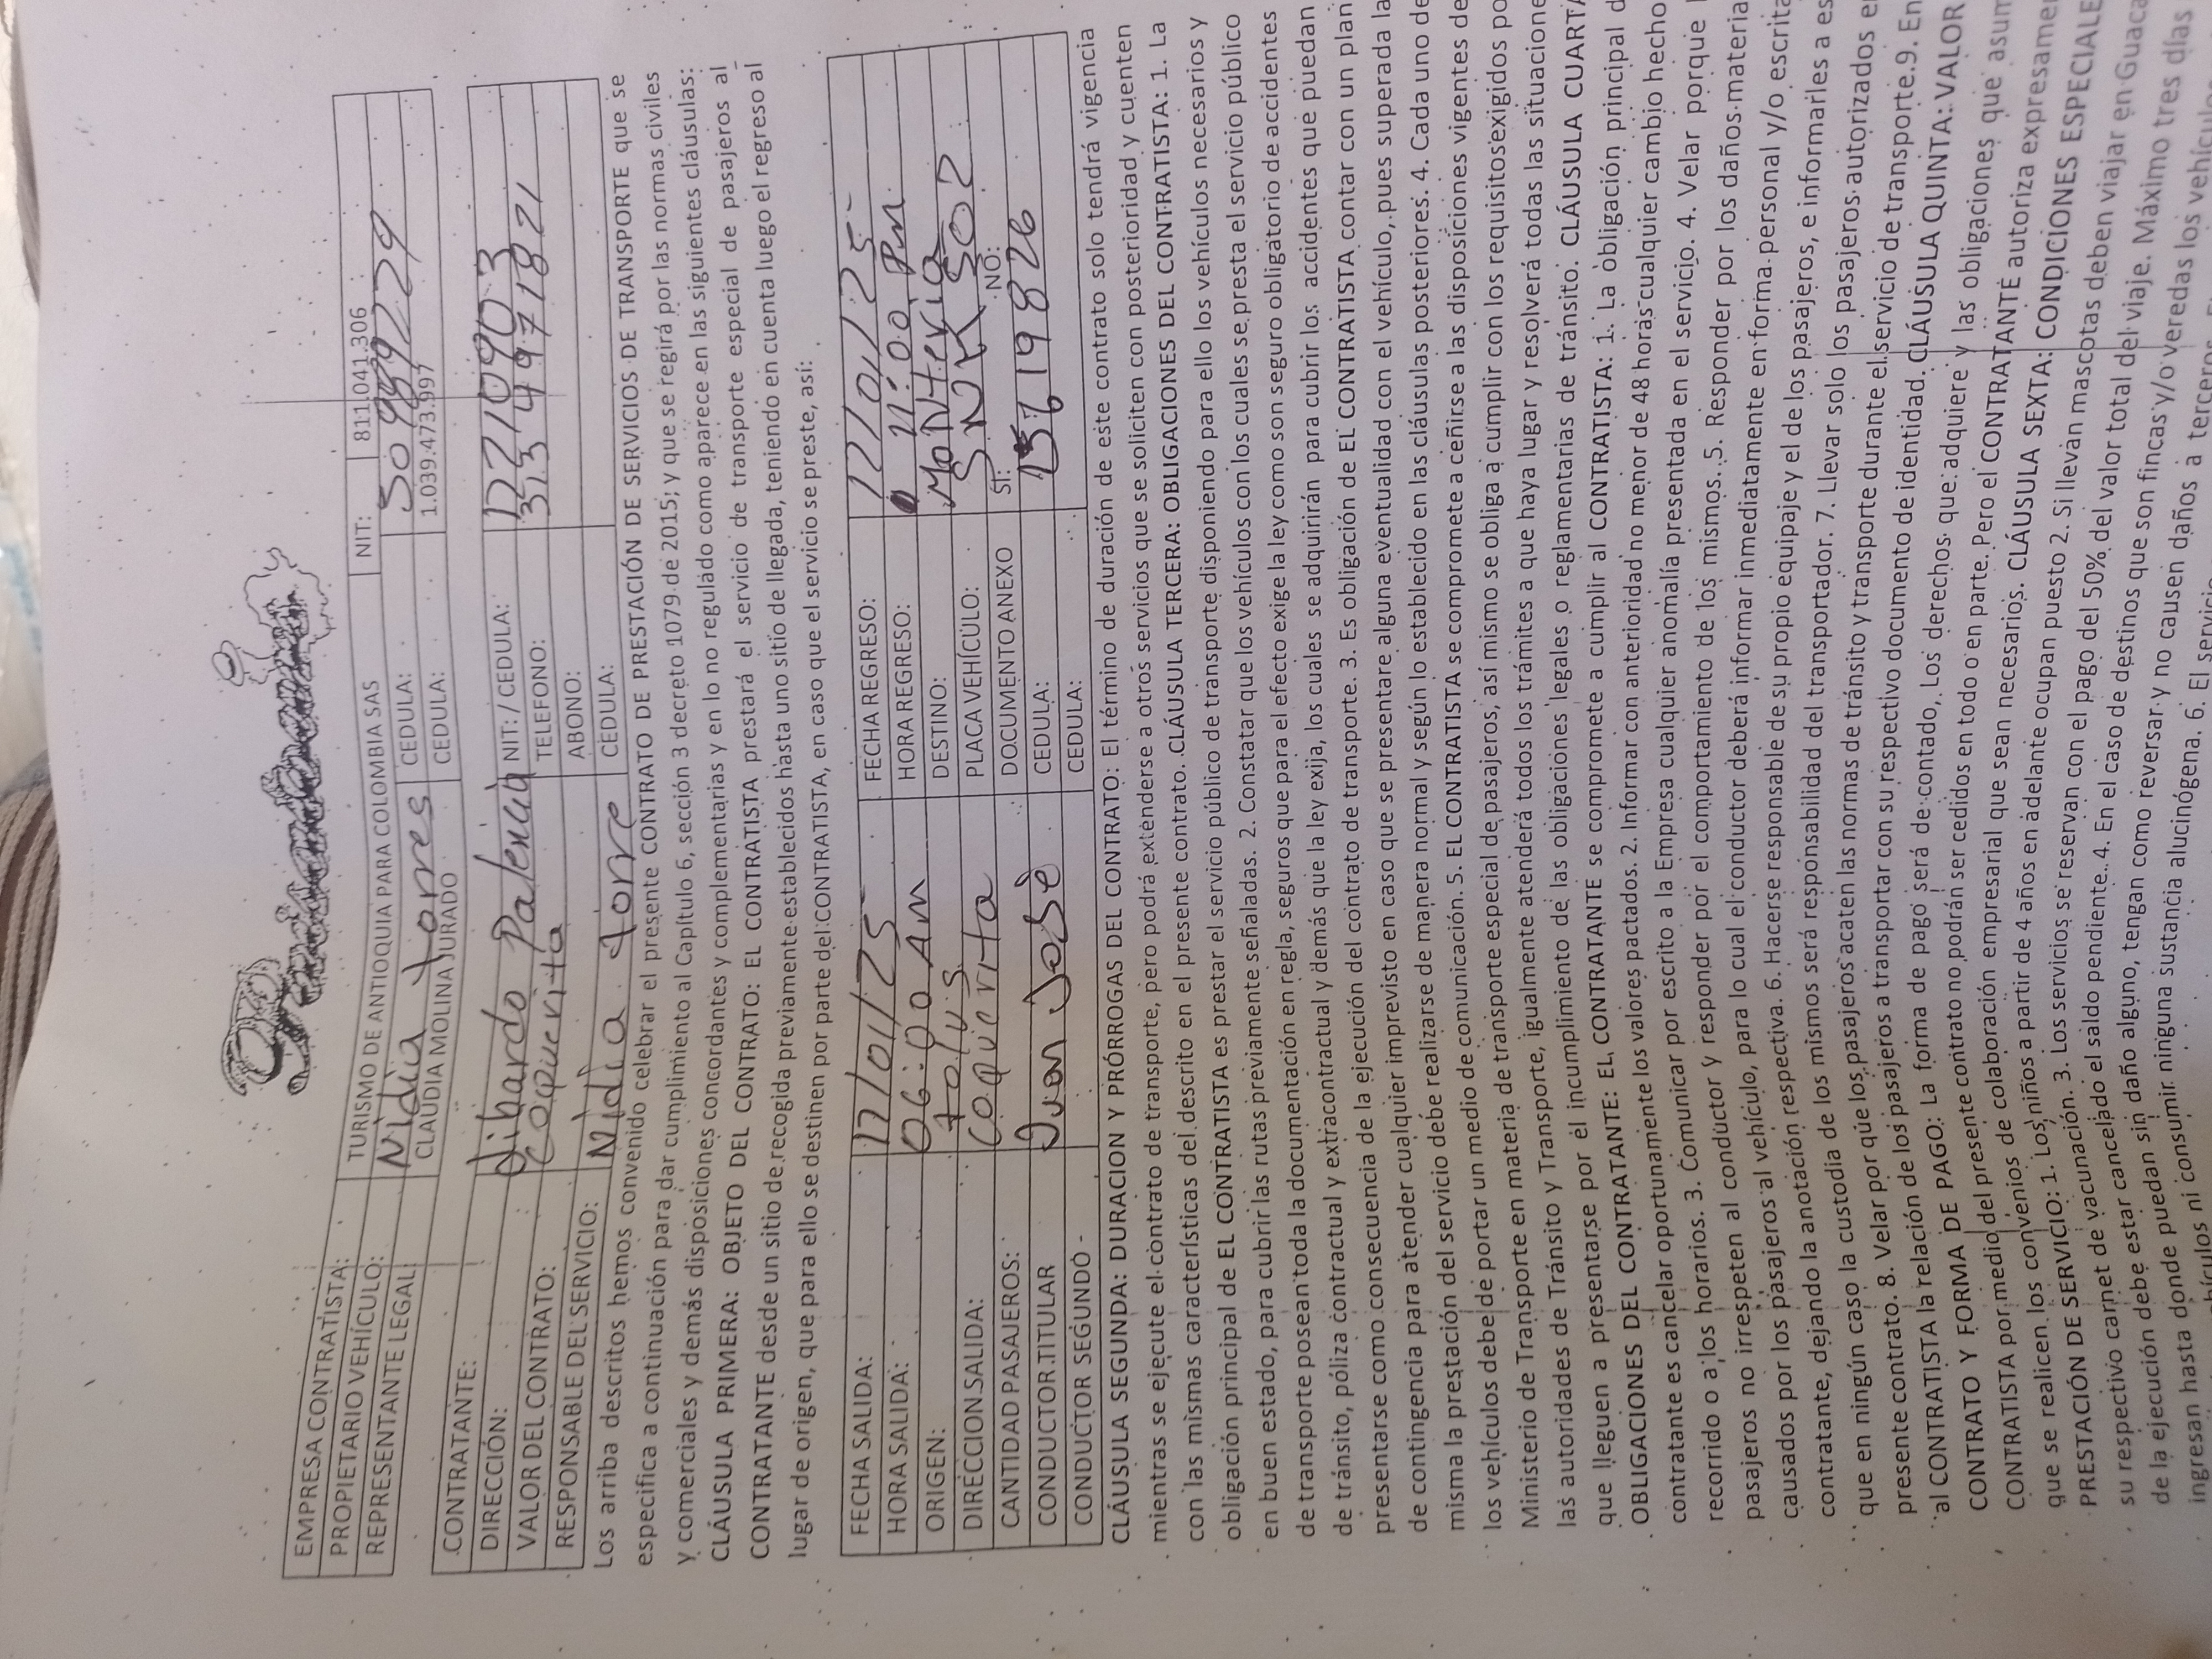 EMPRESA CONTRATISTA: TURISMO DE ANTIOQUIA PARA COLOMBIA SAS NIT: 811.041.306
PROPIETARIO VEHÍCULO: Nidia torres CEDULA: 50989229
REPRESENTANTE LEGAL: CLAUDIA MOLINA JURADO CEDULA: 1.039.473.997
CONTRATANTE: Palencia NIT: / CEDULA:
DIRECCIÓN: Coquerita TELEFONO:
VALOR DEL CONTRATO: ABONO:
RESPONSABLE DEL SERVICIO: Nidia torre CÉDULA:
Los arriba descritos hemos convenido celebrar el presente CONTRATO DE PRESTACIÓN DE SERVICIOS DE TRANSPORTE que se
especifica a continuación para dar cumplimiento al Capítulo 6, sección 3 decreto 1079 de 2015; y que se regirá por las normas civiles
y comerciales y demás disposiciones concordantes y complementarias y en lo no regulado como aparece en las siguientes cláusulas:
CLÁUSULA PRIMERA: OBJETO DEL CONTRATO: EL CONTRATISTA prestará el servicio de transporte especial de pasajeros al
CONTRATANTE desde un sitio de recogida previamente establecidos hasta uno sitio de llegada, teniendo en cuenta luego el regreso al
lugar de origen, que para ello se destinen por parte del CONTRATISTA, en caso que el servicio se preste, así:
FECHA SALIDA: 12/01/25 FECHA REGRESO: 12/01/25
HORA SALIDA: 06:00 Am HORA REGRESO: 11:00 Pm
ORIGEN: tolus DESTINO: Montería
DIRECCION SALIDA: Coquerita PLACA VEHÍCULO: SNK502
CANTIDAD PASAJEROS: DOCUMENTO ANEXO SI: NO:
CONDUCTOR TITULAR Juan José CEDULA: 619826
CONDUCTOR SEGUNDO CEDULA:
CLÁUSULA SEGUNDA: DURACION Y PRÓRROGAS DEL CONTRATO: El término de duración de este contrato solo tendrá vigencia
mientras se ejecute el contrato de transporte, pero podrá extenderse a otros servicios que se soliciten con posterioridad y cuenten
con las mismas características del descrito en el presente contrato. CLÁUSULA TERCERA: OBLIGACIONES DEL CONTRATISTA: 1. La
obligación principal de EL CONTRATISTA es prestar el servicio público de transporte disponiendo para ello los vehículos necesarios y
en buen estado, para cubrir las rutas previamente señaladas. 2. Constatar que los vehículos con los cuales se presta el servicio público
de transporte posean toda la documentación en regla, seguros que para el efecto exige la ley como son seguro obligatorio de accidentes
de tránsito, póliza contractual y extracontractual y demás que la ley exija, los cuales se adquirirán para cubrir los accidentes que puedan
presentarse como consecuencia de la ejecución del contrato de transporte. 3. Es obligación de EL CONTRATISTA contar con un plan
de contingencia para atender cualquier imprevisto en caso que se presentare alguna eventualidad con el vehículo, pues superada la
misma la prestación del servicio debe realizarse de manera normal y según lo establecido en las cláusulas posteriores. 4. Cada uno de
los vehículos debe de portar un medio de comunicación. 5. EL CONTRATISTA se compromete a ceñirse a las disposiciones vigentes de
Ministerio de Transporte en materia de transporte especial de pasajeros, así mismo se obliga a cumplir con los requisitos exigidos po
las autoridades de Tránsito y Transporte, igualmente atenderá todos los trámites a que haya lugar y resolverá todas las situacione
que lleguen a presentarse por el incumplimiento de las obligaciones legales o reglamentarias de tránsito. CLÁUSULA CUARTA
OBLIGACIONES DEL CONTRATANTE: EL CONTRATANTE se compromete a cumplir al CONTRATISTA: 1. La obligación principal d
contratante es cancelar oportunamente los valores pactados. 2. Informar con anterioridad no menor de 48 horas cualquier cambio hecho
recorrido o a los horarios. 3. Comunicar por escrito a la Empresa cualquier anomalía presentada en el servicio. 4. Velar porque l
pasajeros no irrespeten al conductor y responder por el comportamiento de los mismos. 5. Responder por los daños materia
causados por los pasajeros al vehículo, para lo cual el conductor deberá informar inmediatamente en forma personal y/o escrita
contratante, dejando la anotación respectiva. 6. Hacerse responsable de su propio equipaje y el de los pasajeros, e informarles a es
que en ningún caso la custodia de los mismos será responsabilidad del transportador. 7. Llevar solo los pasajeros autorizados e
presente contrato. 8. Velar por que los pasajeros acaten las normas de tránsito y transporte durante el servicio de transporte. 9. En
al CONTRATISTA la relación de los pasajeros a transportar con su respectivo documento de identidad. CLÁUSULA QUINTA: VALOR
CONTRATO Y FORMA DE PAGO: La forma de pago será de contado. Los derechos que adquiere y las obligaciones que asum
CONTRATISTA por medio del presente contrato no podrán ser cedidos en todo o en parte. Pero el CONTRATANTE autoriza expresamen
que se realicen los convenios de colaboración empresarial que sean necesarios. CLÁUSULA SEXTA: CONDICIONES ESPECIALE
PRESTACIÓN DE SERVICIO: 1. Los niños a partir de 4 años en adelante ocupan puesto 2. Si llevan mascotas deben viajar en Guaca
su respectivo carnet de vacunación. 3. Los servicios se reservan con el pago del 50% del valor total del viaje. Máximo tres días
de la ejecución debe estar cancelado el saldo pendiente. 4. En el caso de destinos que son fincas y/o veredas los vehículo
ingresan hasta donde puedan sin daño alguno, tengan como reversar y no causen daños a terceros.
ni consumir ninguna sustancia alucinógena. 6. El servicio